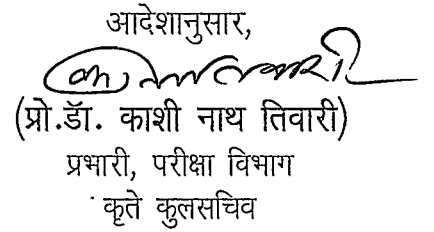 आदेशानुसार,
(प्रो.डॉ. काशी नाथ तिवारी)
प्रभारी, परीक्षा विभाग
कृते कुलसचिव